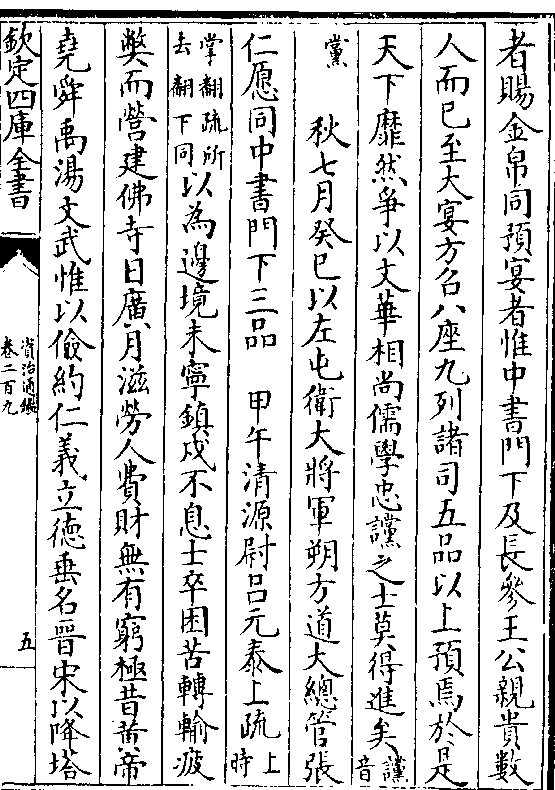 者賜金帛同預宴者惟中書門下及長參王公親貴數
人而已至大宴方召八座九列諸司五品以上預焉於是
天下靡然爭以文華相尚儒學忠讜之士莫得進矣讜音
黨　秋七月癸巳以左屯衛大將軍朔方道大總管張
仁愿同中書門下三品　甲午清源尉呂元泰上疏上時
掌翻疏所去翻下同以為邊境未寧鎮戍不息士卒困苦轉輸疲
弊而營建佛寺日廣月滋勞人費財無有窮極昔黄帝
堯舜禹湯文武惟以儉約仁義立德垂名晉宋以降塔
欽定四庫全書
資治通鑑
卷二百九
五